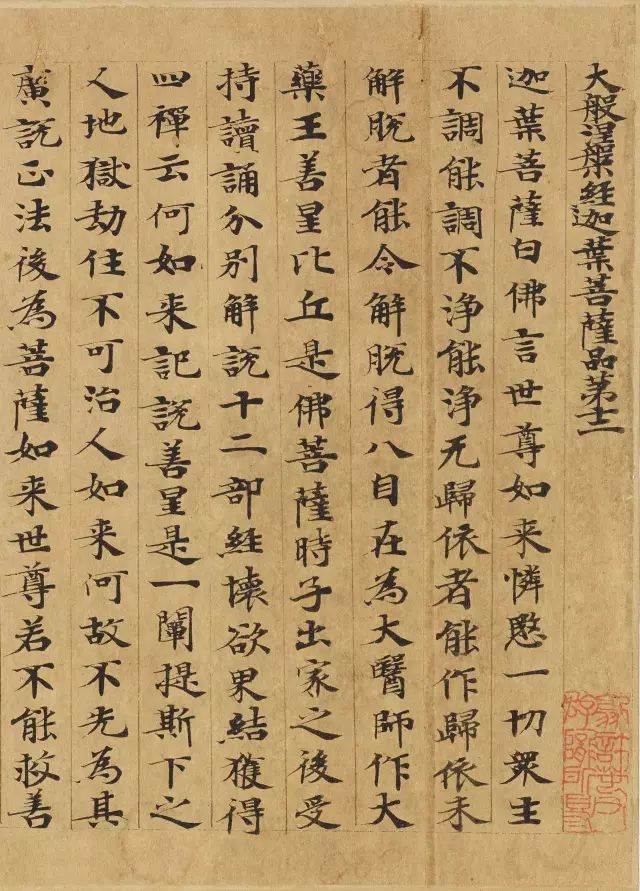 大般涅槃經迦葉菩薩品第十二
迦葉菩薩白佛言世尊如来憐愍一切衆生
不調能調不淨能淨无歸依者能作歸依未
解脫者能令解脫得八自在為大醫師作大
藥王善星比丘是佛菩薩時子出家之後受
持讀誦分别解說十二部經壞欲界結獲得
四禪云何如来記說善星是一闡提斯下之
人地獄劫住不可治人如来何故不先為其
廣說正法後為菩薩如来世尊若不能救善